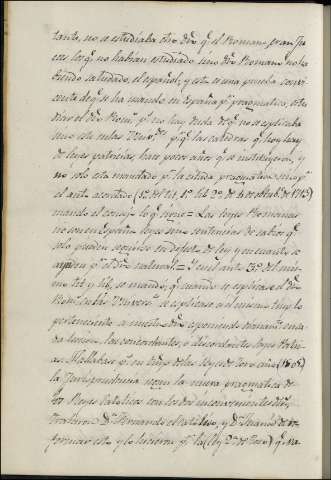 tanto, no se estudiaba otro dro. q.e el Romano, eran Jue
ces los q.e no habian estudiado uno dro. Romano no ha
biendo saludado el español; y esta es una prueba conv
cente de q.e se ha mandado en España p.r pragmatica estu
diar el dro. Rom.o p.s no hay duda de q.e no se esplicaba
uno este en las Univ.des p.s q.e las catedras q.e hoy hay
de leyes patrias, hace pocos años q.e se instituyeron, y
no solo esta mandado p.r la citada pragmatica sino p.r
el auto acordado (3.o del tit. 1.o lib. 2.o de 4 de obre. de 1713)
mando el consejo lo q.e sigue = Las leyes Romanas
no son en España leyes sino sentencias de sabios q.e
solo pueden seguirse en defecto de ley y en cuanto se
ayuden p.r el dro. natural = Y en el auto 3.o del mis
mo tit. y lib. se mandó, q.e cuando se esplicase el dro.
Rom.o en las Univers. se esplicase al mismo tiempo lo
perteneciente a nuestro dro. esponiendo
las concordantes, o discordantes leyes Patri
as. Hallabase p.s en tiempo de las leyes de Toro año (1505)
la Jurisprudencia con la nueva pragmatica de
los Reyes Catolicos con los dos inconvenientes dhos.
Trataron D.n Fernando el Catolico, y D.a Juana de re
formar esto y lo hicieron p.r la (ley 2.a de Toro) q.e